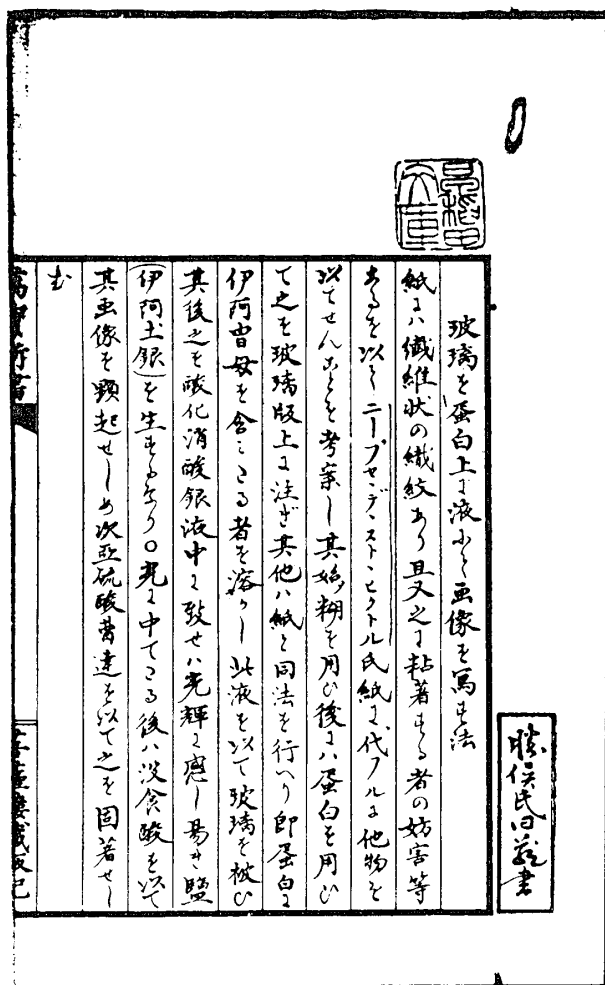 玻璃を蛋白上に液ふて画像を写す法
紙には纖維状の織紋あり且又之に粘著する者の妨害等
あるを以て ニープセ、デ、スト、ヒクトル氏紙に代フルに他物を
以てせんことを考案し其始糊を用ひ後には蛋白を用ひ
て之を玻璃版上に注ぎ其他ハ紙と同法を行へり即蛋白に
伊阿曹母を含ミたる者を溶かし此液を以て玻璃を被ひ
其後之を酸化消酸銀液中に致せハ光輝に感し易き塩
(伊阿土銀)を生するなり〇光に中てたる後ハ没食酸を以て
其画像を顕起せしめ次亜硫酸曹達を以て之を固著せし
む
勝俣氏蔵書